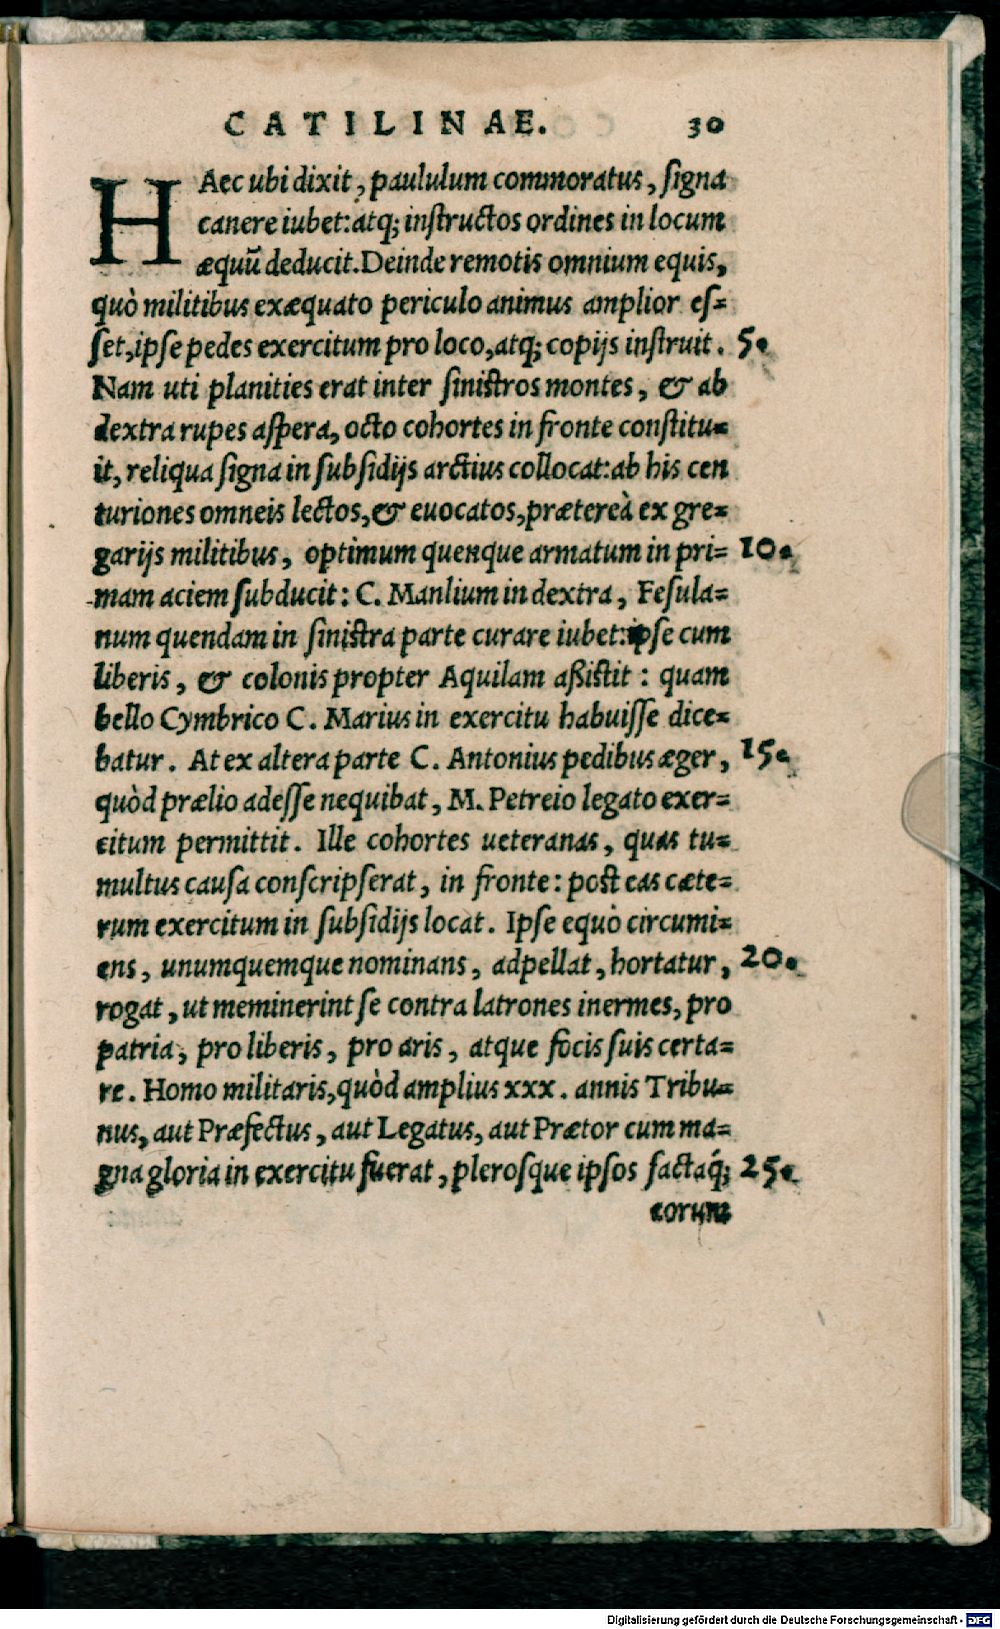 CATILINAE. 30
HAec ubi dixit, paululum commoratus, ſigna
canere iubet: atq; inſtructos ordines in locum
æquū deducit. Deinde remotis omnium equis,
quò militibus exæquato periculo animus amplior eſ=
ſet, ipſe pedes exercitum pro loco, atq; copijs inſtruit. 5.
Nam uti planities erat inter ſiniſtros montes, & ab
dextra rupes aſpera, octo cohortes in fronte conſtitu=
it, reliqua ſigna in ſubſidijs arctius collocat: ab his cen
turiones omneis lectos, & euocatos, prætereà ex gre=
garijs militibus, optimum quenque armatum in pri= 10.
mam aciem ſubducit: C. Manlium in dextra, Feſula=
num quendam in ſiniſtra parte curare iubet: ipſe cum
liberis, & colonis propter Aquilam aßiſtit: quam
bello Cymbrico C. Marius in exercitu habuiſſe dice=
batur. At ex altera parte C. Antonius pedibus æger, 15.
quòd prælio adeſſe nequibat, M. Petreio legato exer=
citum permittit. Ille cohortes ueteranas, quas tu=
multus cauſa conſcripſerat, in fronte: poſt eas cæte=
rum exercitum in ſubſidijs locat. Ipſe equò circumi=
ens, unumquemque nominans, adpellat, hortatur, 20.
rogat, ut meminerint ſe contra latrones inermes, pro
patria, pro liberis, pro aris, atque focis ſuis certa=
re. Homo militaris, quòd amplius xxx. annis Tribu=
nus, aut Præfectus, aut Legatus, aut Prætor cum ma=
gna gloria in exercitu fuerat, pleroſque ipſos factaq́; 25.
eorum
Digitalisierung gefördert durch die Deutsche Forschungsgemeinschaft - DFG